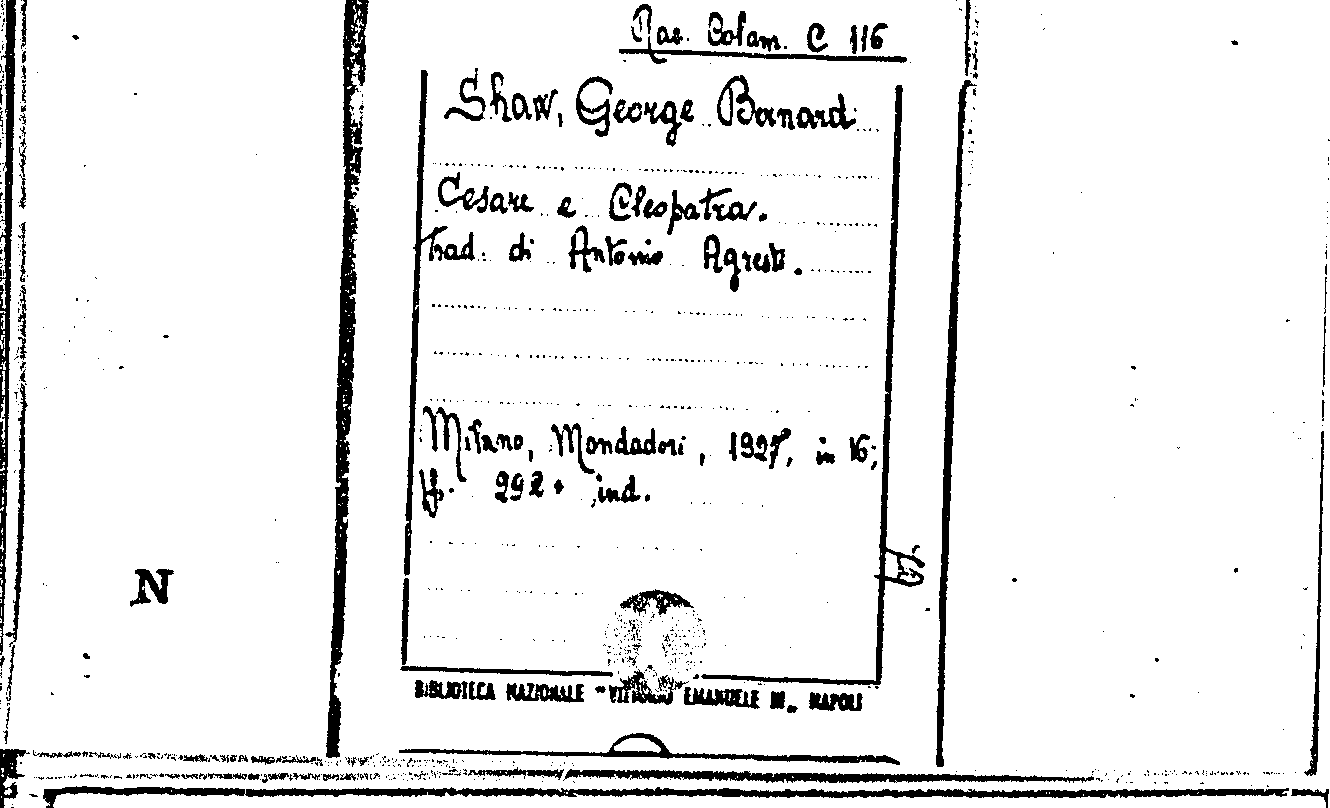 Rac. Colam. C 116
Shaw, George Bernard
Cesare e Cleopatra.
Trad. di Antonio Agresti.
Milano, Mondadori, 1927, in 16;
pp. 292 + ind.
N
BIBLIOTECA NAZIONALE "VITTORIO EMANUELE III„ NAPOLI